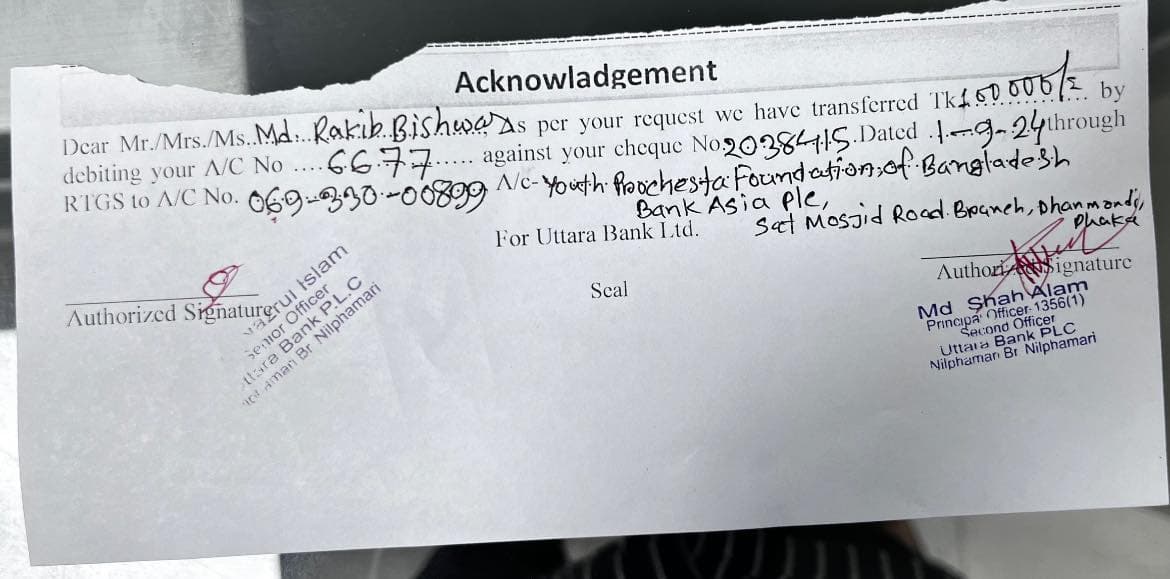 Acknowladgement
Dear Mr./Mrs./Ms..Md... Rakib.Bishwas As per your request we have transferred Tk150000/= by
debiting your A/C No ....6677..... against your cheque No2038415.Dated .1-9-24through
RTGS to A/C No. 069-330-00899 A/c-Youth Proochesta Foundation,of Bangladesh
Bank Asia Plc,
Sat Mosjid Road Branch, Dhanmondi,
Dhaka
For Uttara Bank Ltd.
Authorized Signature
Seal
Authorized Signature
Islam
Senior Officer
Uttara Bank P.L.C
Br Nilphamari
Md Shah Alam
Principal Officer-1356(1)
Second Officer
Uttara Bank PLC
Nilphamari Br Nilphamari